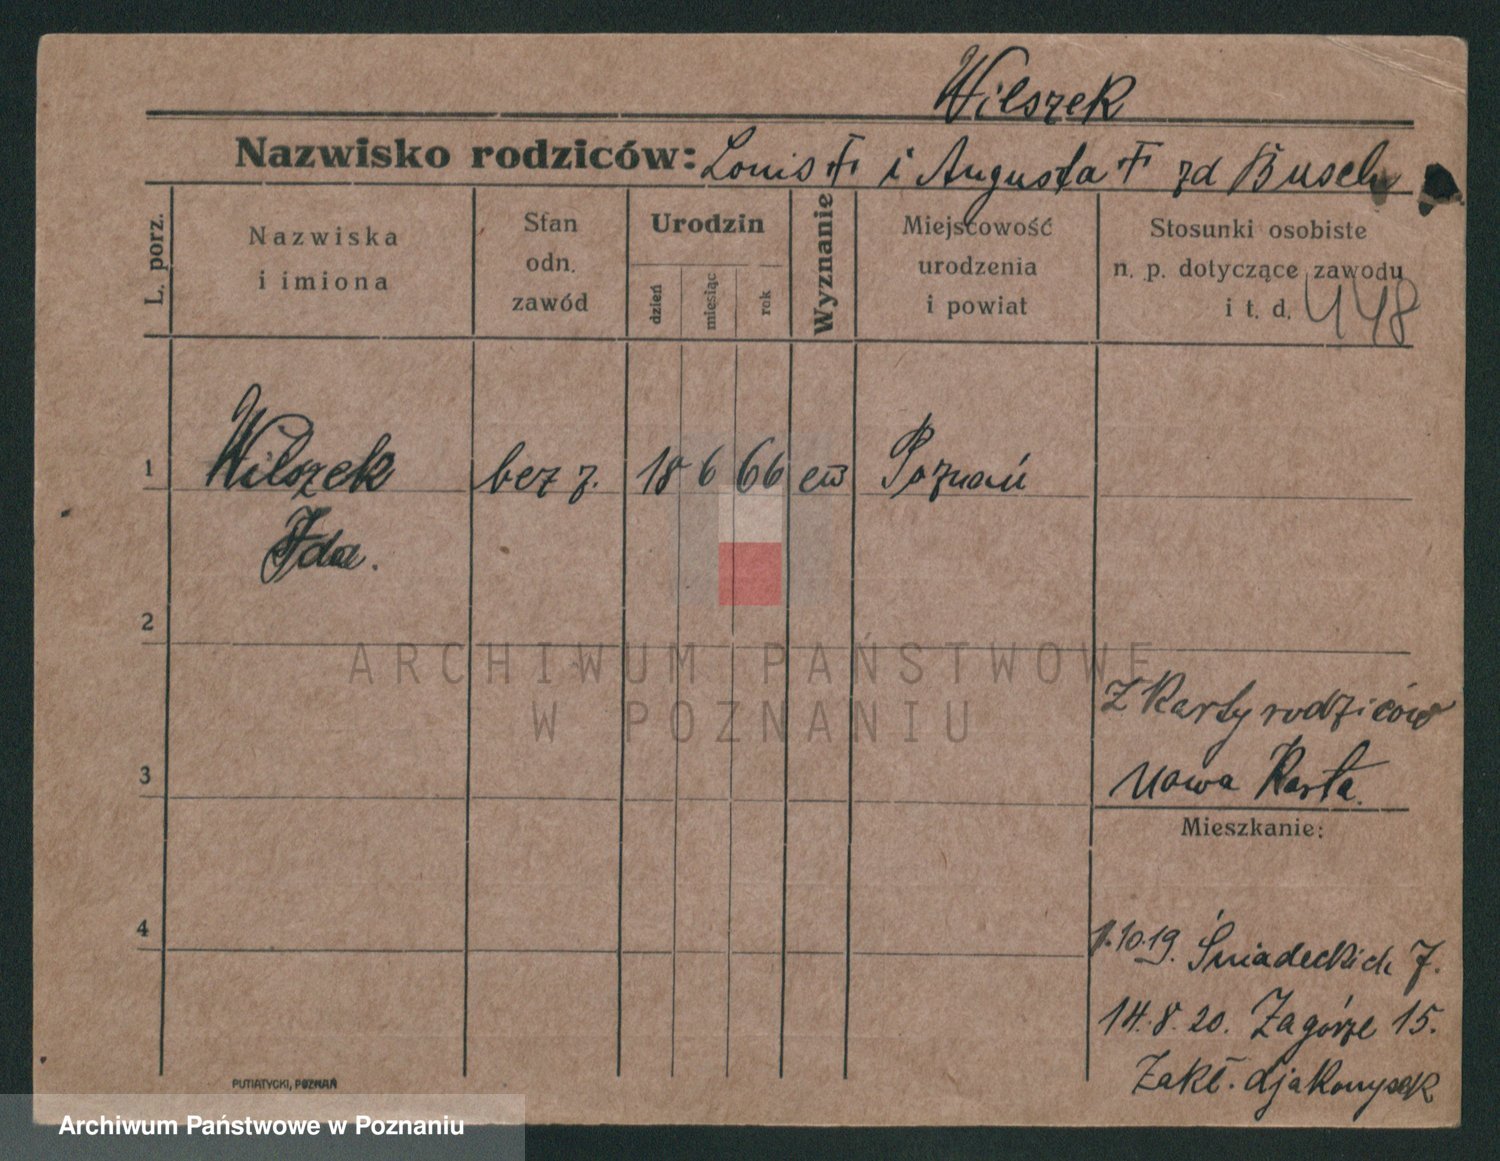 Wilszek
Nazwisko rodziców: Louis † i Augusta † zd Busch
L. porz.
Nazwiska
i imiona
Stan
odn.
zawód
Urodzin
dzień
miesiąc
rok
Wyznanie
Miejscowość
urodzenia
i powiat
Stosunki osobiste
n. p. dotyczące zawodu
i t. d.
448
1 Wilszek bez z. 18 6 66 ew Poznań
Ida.
2
ARCHIWUM PAŃSTWOWE
W POZNANIU
Z Karty rodziców
nowa Karta.
3
Mieszkanie:
4
1.10.19. Śniadeckich 7.
14.8.20. Zagórze 15.
Zakł. djakonysek
PUTIATYCKI, POZNAŃ
Archiwum Państwowe w Poznaniu